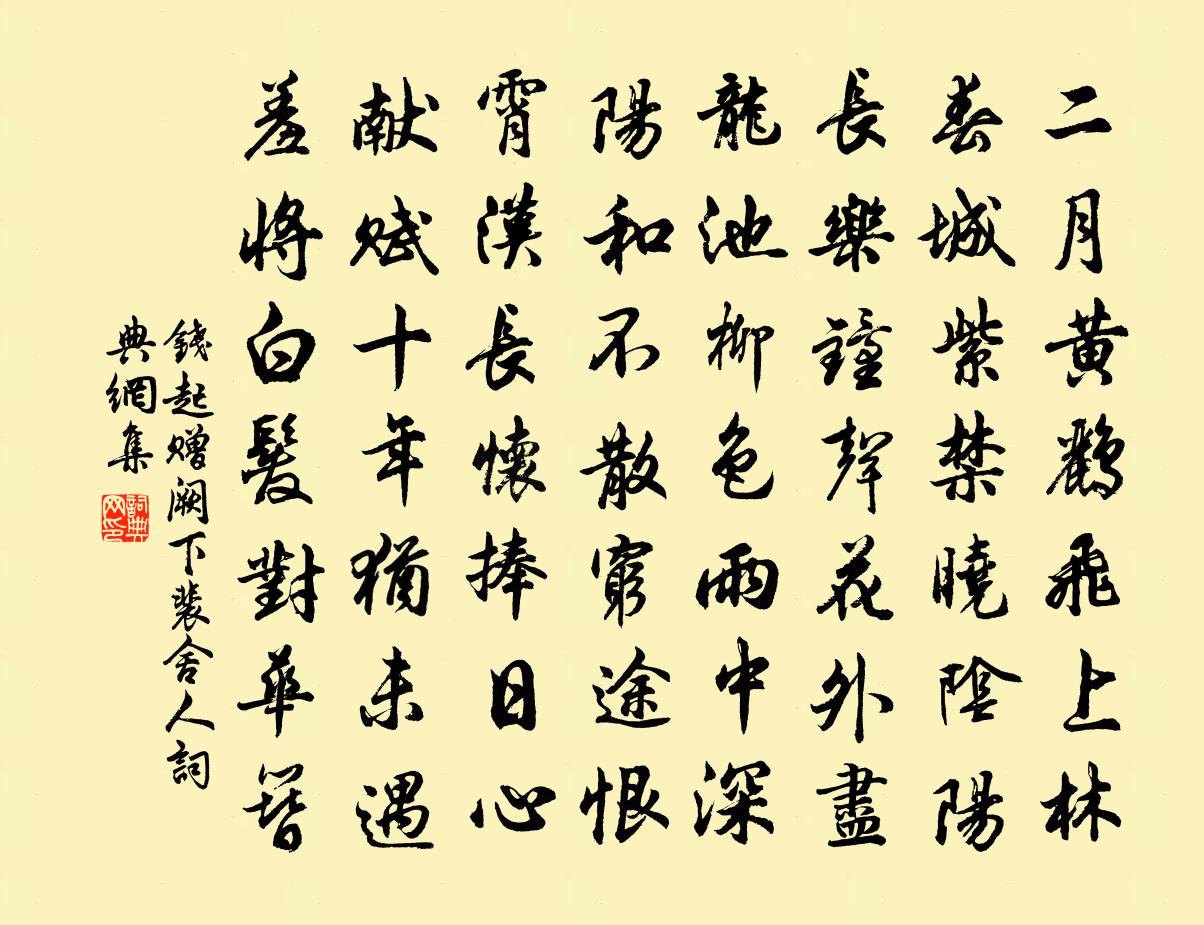 二月黄鸝飛上林
春城紫禁曉陰陽
長樂鐘聲花外盡
龍池柳色雨中深
陽和不散窮途恨
霄漢長懷捧日心
献賦十年猶未遇
羞將白髮對華簪
錢起贈阙下裴舍人詞
典網集
詞典网印